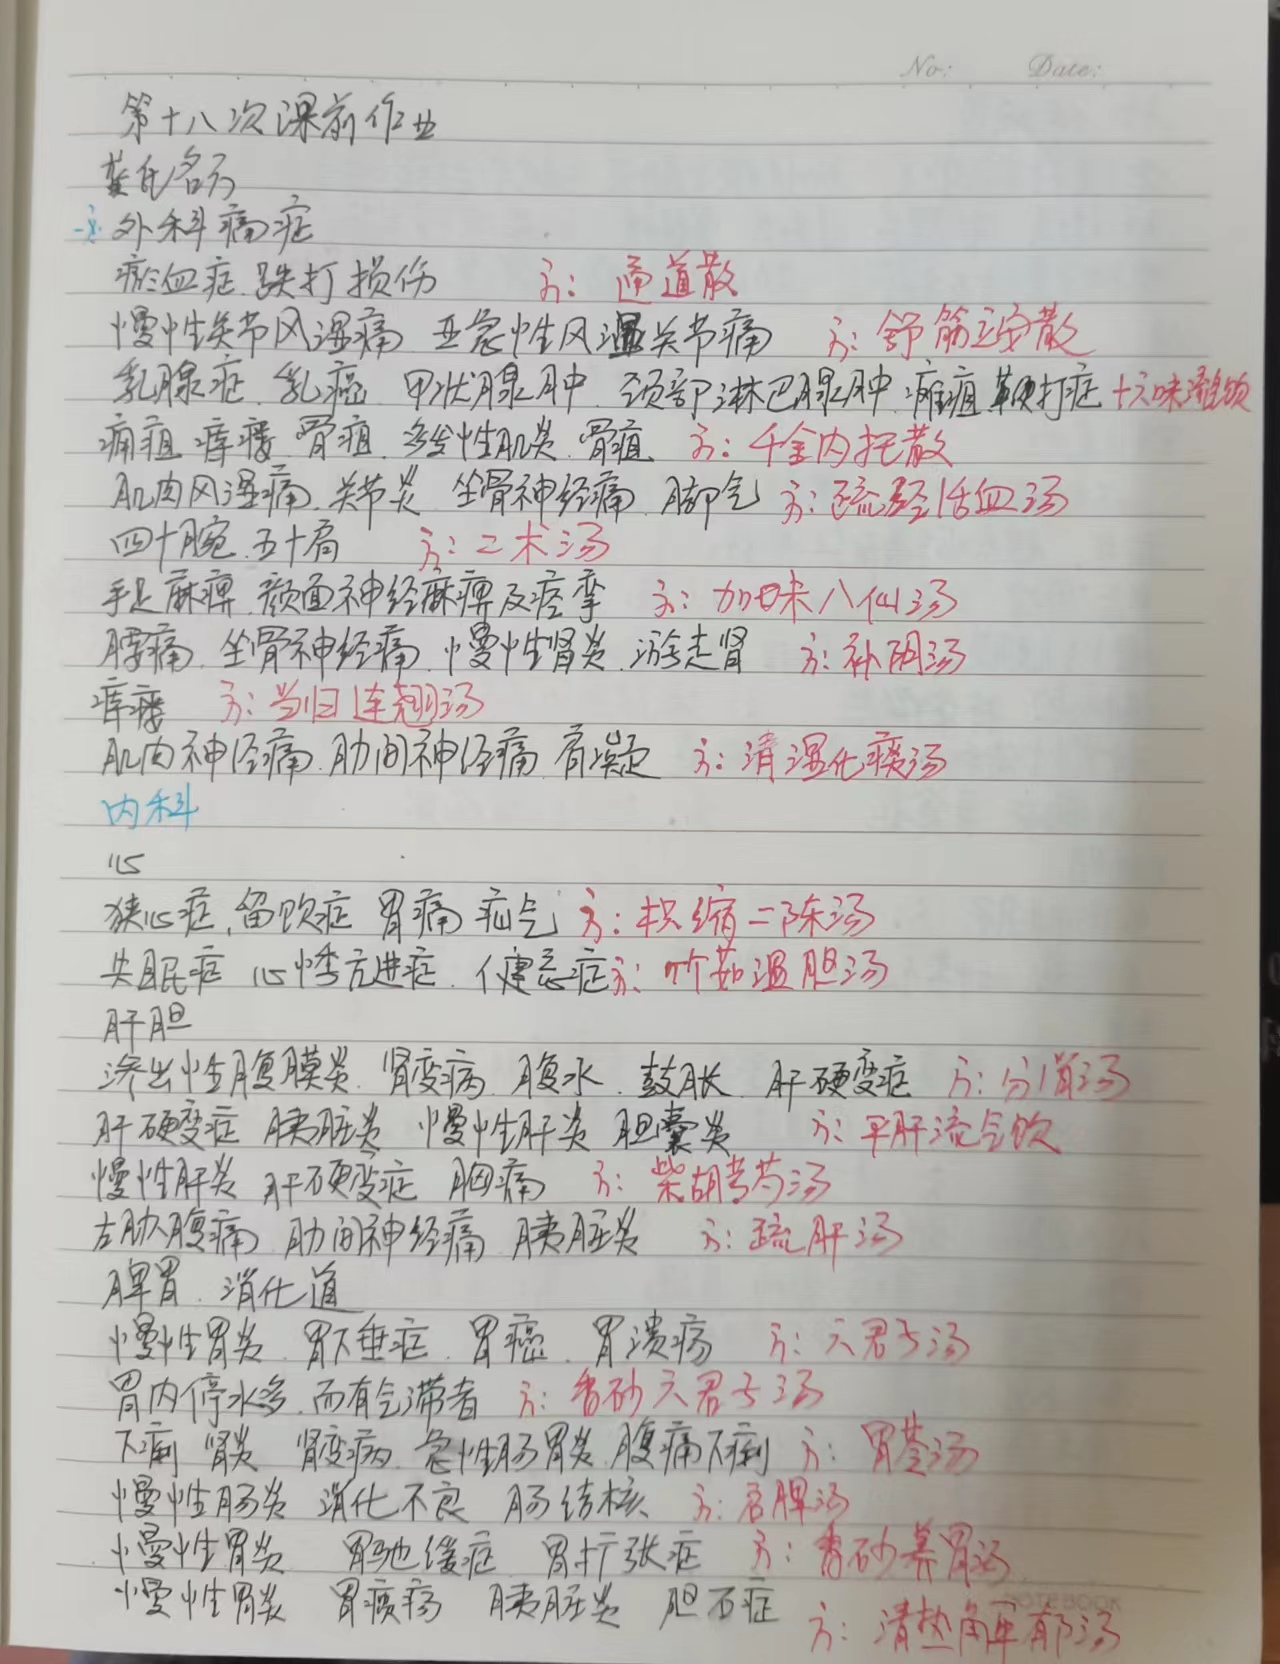 No: Date:
第十八次课前作业
龚氏名方
一. 外科痛症
瘀血症.跌打损伤 方：通道散
慢性关节风湿痛 亚急性风湿关节痛 方：舒筋立安散
乳腺症.乳癌.甲状腺肿 颈部淋巴腺肿.瘫疽 打症 十六味流饮
痛疽 瘰疬 骨疽.多发性肌炎.骨疽 方：千金内托散
肌肉风湿痛.关节炎.坐骨神经痛.脚气 方：疏经活血汤
四十腕.五十肩 方：二术汤
手足麻痹.颜面神经麻痹及痉挛 方：加味八仙汤
腰痛.坐骨神经痛.慢性肾炎.游走肾 方：补阴汤
方：当归连翘汤
肌肉神经痛.肋间神经痛.肩凝 方：清湿化痰汤
内科
心
狭心症,留饮症 胃痛 疝气 方：枳缩二陈汤
失眠症 心悸亢进症.健忘症 方：竹茹温胆汤
肝胆
渗出性腹膜炎.肾变病.腹水.鼓胀.肝硬变症 方：分消汤
肝硬变症 胰脏炎 慢性肝炎 胆囊炎 方：平肝流气饮
慢性肝炎 肝硬变症 胸痛 方：柴胡芍汤
左肋腹痛 肋间神经痛 胰脏炎 方：疏肝汤
脾胃.消化道
慢性胃炎.胃下垂症.胃癌.胃溃疡 方：六君子汤
胃内停水多.而有气滞者 方：香砂六君子汤
下痢 肾炎 肾变病.急性肠胃炎.腹痛下痢 方：胃苓汤
慢性肠炎 消化不良 肠结核 方：启脾汤
慢性胃炎 胃驰缓症 胃扩张症 方：香砂养胃汤
慢性胃炎 胃疡 胰脏炎 胆石症 方：清热解郁汤
NOTEBOOK